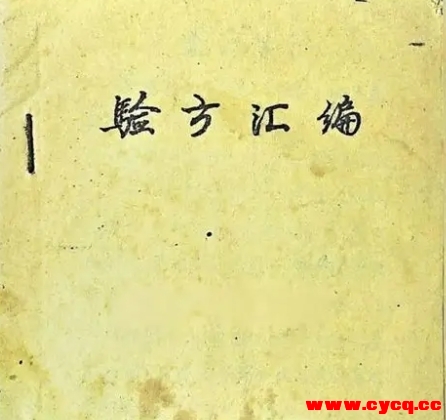 验方汇编
www.cycq.cc